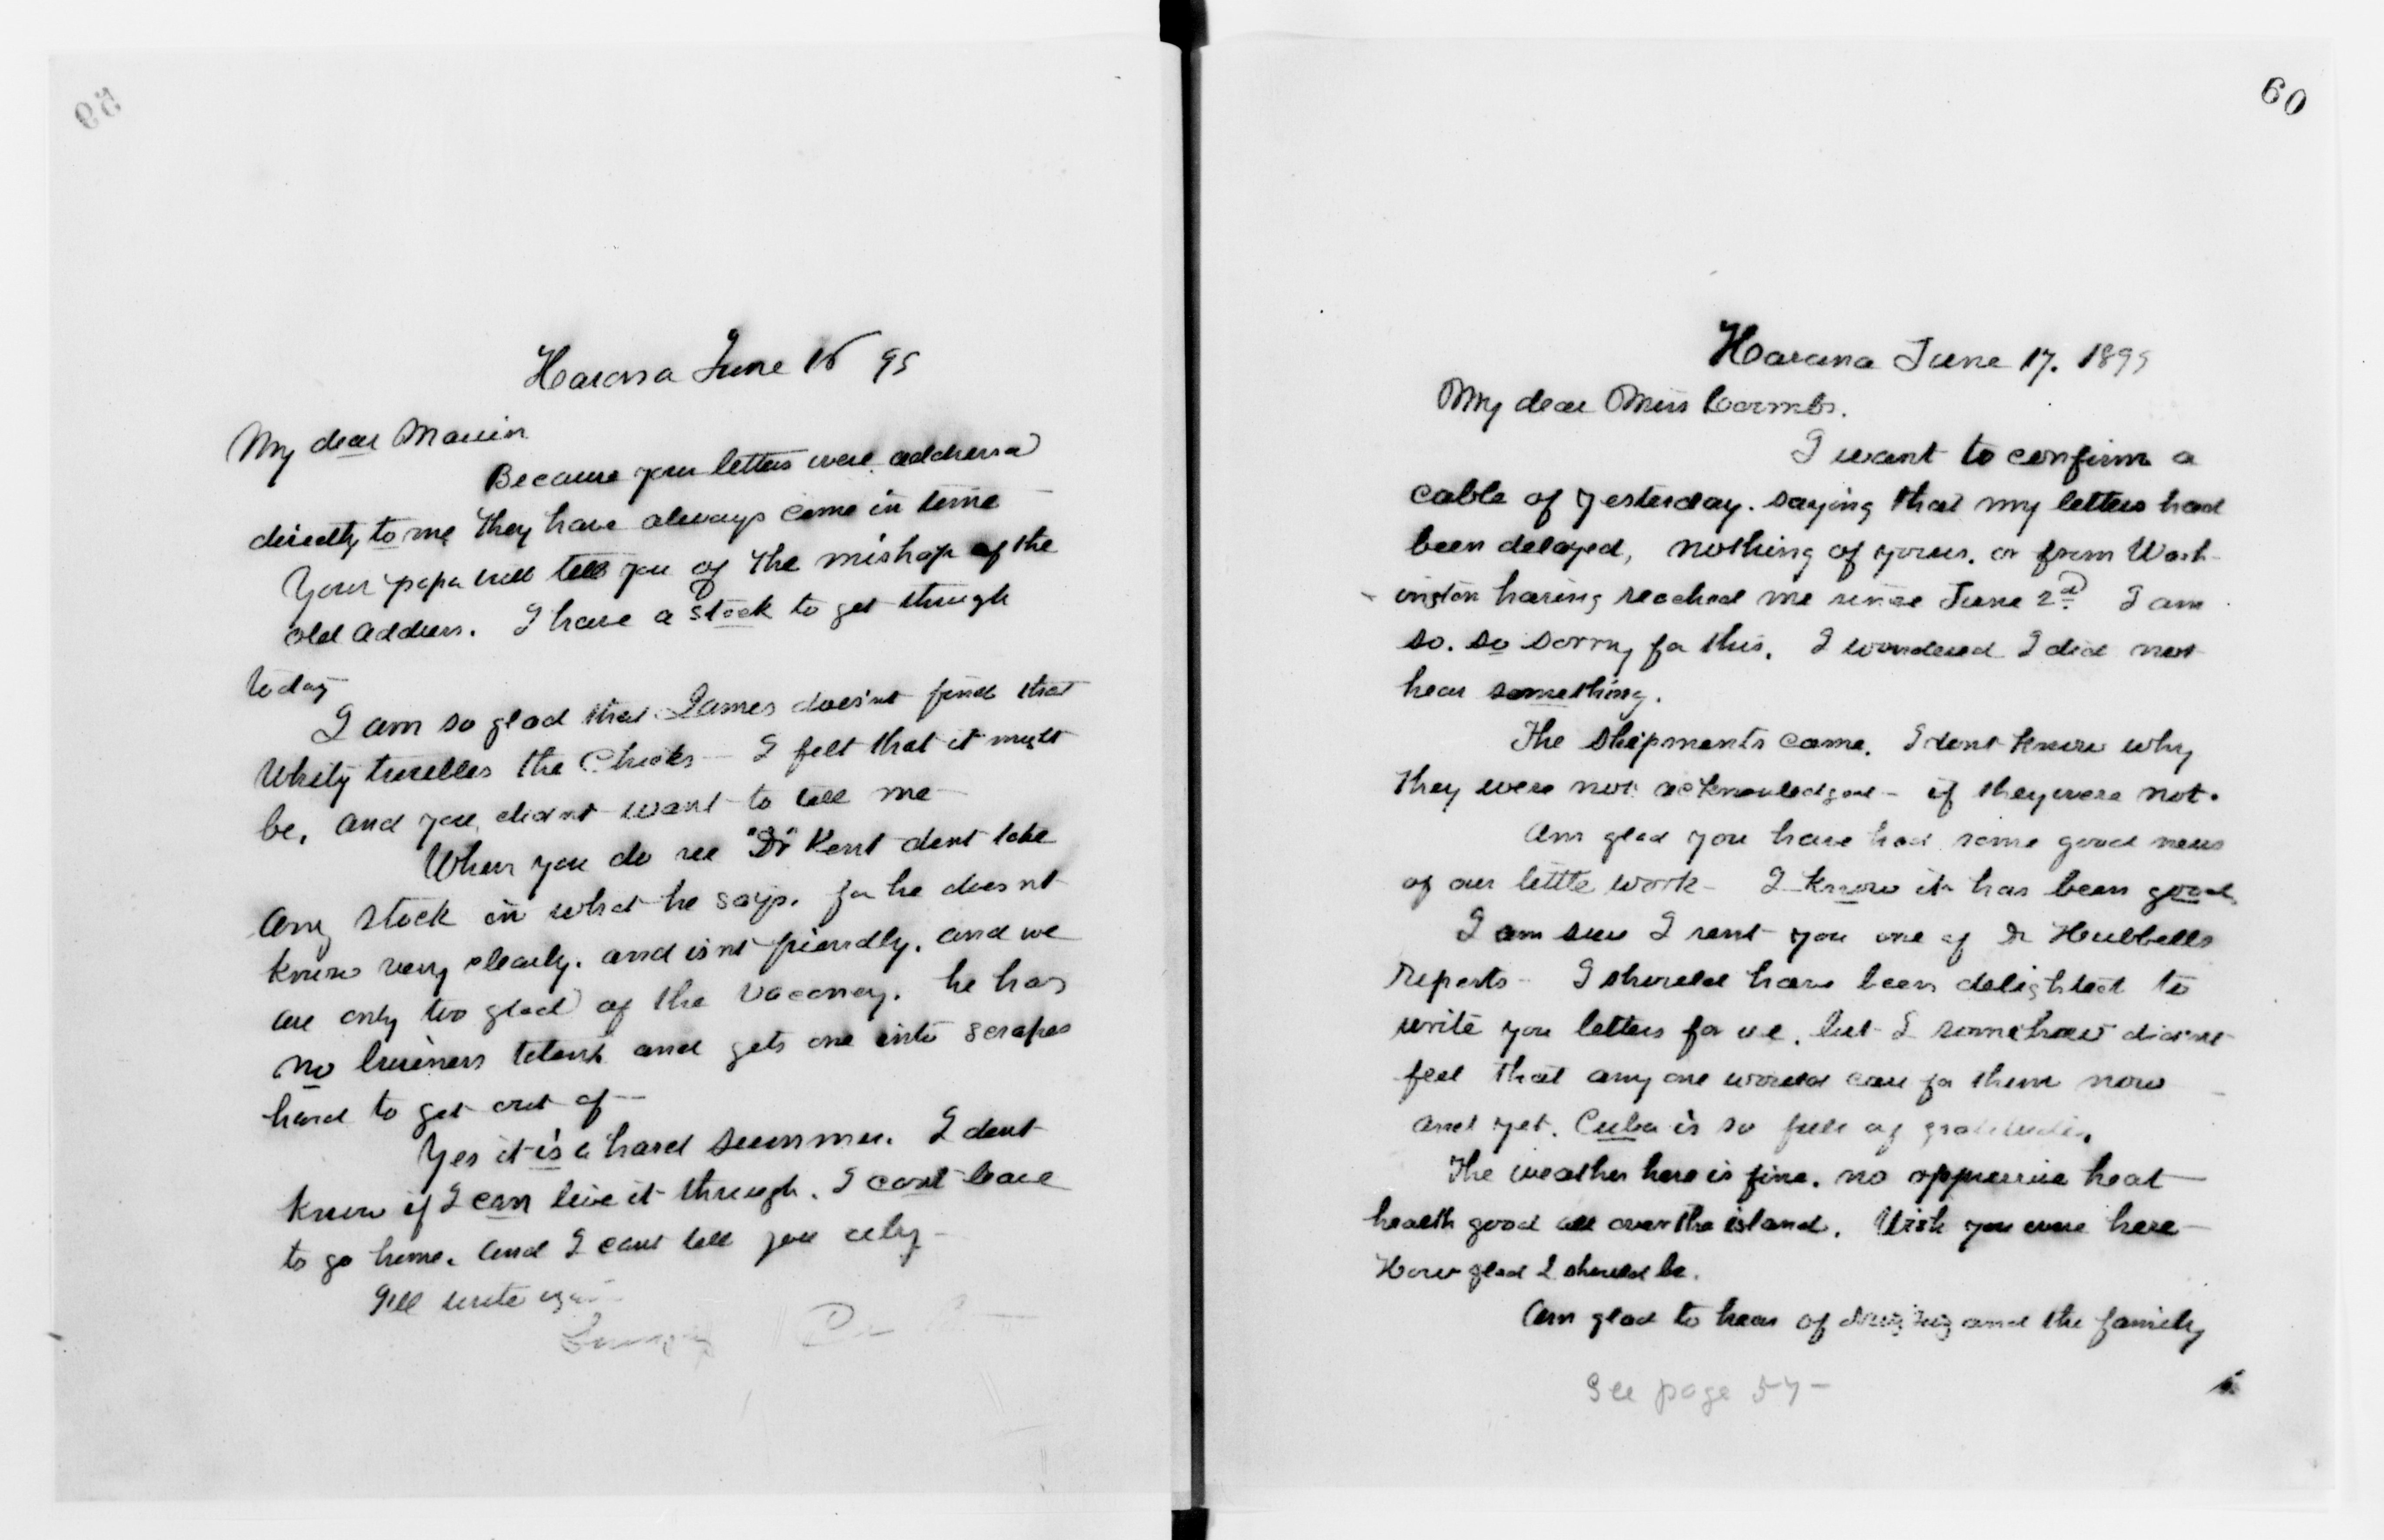 59
Havana June 16 99
My dear Marvin
Because your letters were addressed
directly to me they have always come in time
Your papa will tell you of the mishap of the
old address. I have a stock to get through
today
I am so glad that James doesnt find that
Whity troubles the Chicks — I felt that it might
be, and you didnt want to tell me —
When you do see "Dr" Kent dont take
any stock in what he says. for he doesnt
know very clearly. and isnt friendly. and we
are only too glad of the vacancy. he has
no business talent and gets one into scrapes
hard to get out of —
Yes it is a hard summer. I dont
know if I can live it through. I cant leave
to go home. and I cant tell you why —
Ill write again
60
Havana June 17. 1899
My dear Miss Coombs.
I want to confirm a
cable of yesterday. saying that my letters had
been delayed, nothing of yours. or from Wash-
ington having reached me since June 2d. I am
so. so sorry for this. I wondered I did not
hear something.
The shipments came. I dont know why
they were not acknowledged — if they were not.
Am glad you have had some good news
of our little work — I know it has been good,
I am sure I sent you one of Dr Hubbells
reports — I should have been delighted to
write you letters for use, but I somehow didnt
feel that any one would care for them now —
and yet. Cuba is so full of gratitude.
The weather here is fine. no oppressive heat —
health good all over the island. Wish you were here —
How glad I should be.
Am glad to hear of and the family
See page 57 —